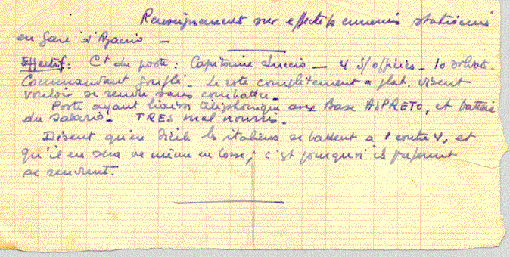 Renseignement sur effectifs ennemis stationnés
en gare d'Ajaccio —
Effectif: Ct du poste: Capitaine Luccio — 4 S/offiers — 10 soldats
Commandant Le reste complètement à plat. Disent
vouloir se rendre sans combattre.
Poste ayant liaison téléphonique avec Base ASPRETO, et batterie
du Salario. — TRES mal nourris.
Disent qu'en Sicile les italiens se battent à 1 contre 4, et
qu'il en sera de même en Corse, c'est pourquoi ils préfèrent
se rendre.